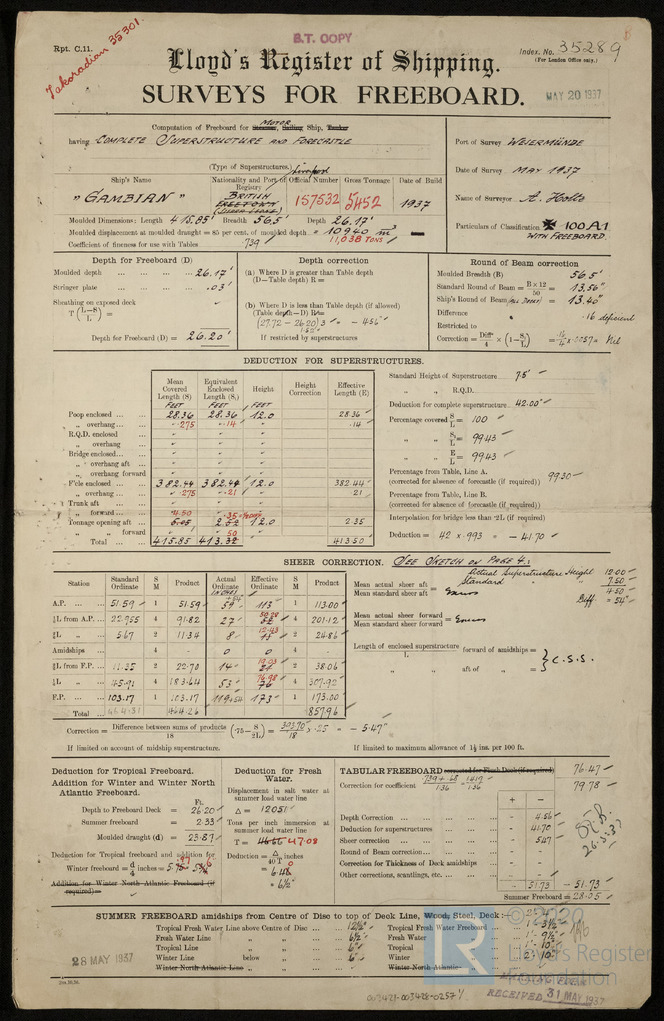 Rpt. C.11.
Takoradian 35301.
B.T. COPY
Index. No. 35289
(For London Office only.)
Lloyd's Register of Shipping.
SURVEYS FOR FREEBOARD.
MAY 20 1937
Computation of Freeboard for Steamer, Sailing Ship, Tanker
MOTOR
having COMPLETE SUPERSTRUCTURE AND FORECASTLE
(Type of Superstructures.)
Port of Survey WESERMÜNDE
Date of Survey MAY 1937
Name of Surveyor A. Holtz
Particulars of Classification ✠ 100 A.1
WITH FREEBOARD.
Ship's Name
Nationality and Port of Registry
Official Number
Gross Tonnage
Date of Build
"GAMBIAN"
BRITISH
FREETOWN
(SIERRA LEONE)
157532
5452
1937
Moulded Dimensions: Length 415.85' Breadth 56.5' Depth 26.17'
Moulded displacement at moulded draught = 85 per cent. of moulded depth = 10940 m³
11,038 TONS
Coefficient of fineness for use with Tables .739
Depth for Freeboard (D)
Moulded depth ... 26.17'
Stringer plate ... .03'
Sheathing on exposed deck
T (L-S / L) =
Depth for Freeboard (D) = 26.20'
Depth correction
(a) Where D is greater than Table depth
(D—Table depth) R =
(b) Where D is less than Table depth (if allowed)
(Table depth—D) R =
(27.72 - 26.20) 3 = - 4.56"
1.52
If restricted by superstructures
Round of Beam correction
Moulded Breadth (B) 56.5'
Standard Round of Beam = B × 12 / 50 = 13.56"
Ship's Round of Beam (ALL DECKS) = 13.40"
Difference .16 deficient
Restricted to
Correction = Diff. / 4 × (1 - S₁ / L) = .16 / 4 × .0057 = Nil
DEDUCTION FOR SUPERSTRUCTURES.
Mean Covered Length (S)
Equivalent Enclosed Length (S₁)
Height
Height Correction
Effective Length (E)
FEET FEET FEET
Poop enclosed ... 28.36 28.36 12.0 28.36
„ overhang ... .275 .14 .14
R.Q.D. enclosed
„ overhang
Bridge enclosed ...
„ overhang aft ...
„ overhang forward
F'cle enclosed ... 382.44 382.44 12.0 382.44
„ overhang ... .275 .21 .21
Trunk aft ...
„ forward ...
Tonnage opening aft ... 12.0 2.35
„ „ forward
4.50
.50
Total ... 415.85 413.32 413.50
Standard Height of Superstructure 7.5'
„ „ R.Q.D.
Deduction for complete superstructure 42.00"
Percentage covered S / L = 100
„ „ S₁ / L = 99.43
„ „ E / L = 99.43
Percentage from Table, Line A.
(corrected for absence of forecastle (if required))
99.30
Percentage from Table, Line B.
(corrected for absence of forecastle (if required))
Interpolation for bridge less than .2L (if required)
Deduction = 42 × .993 = - 41.70
SHEER CORRECTION. SEE SKETCH ON PAGE 4.
Station
Standard Ordinate
S M
Product
Actual Ordinate
Effective Ordinate
S M
Product
INCHES
A.P. ... 51.59 1 51.59 59 113 1 113.00
⅙L from A.P. ... 22.955 4 91.82 27 50.28 4 201.12
⅓L „ 5.67 2 11.34 8 12.43 2 24.86
Amidships 4 - 0 0 4 -
⅓L from F.P. ... 11.35 2 22.70 14 19.03 2 38.06
⅙L „ 45.91 4 183.64 53 76.98 4 307.92
F.P. ... 103.17 1 103.17 119+54 173 1 173.00
Total ... 464.26 857.96
Actual Superstructure Height 12.00
Standard „ „ 7.50
4.50
Diff = 54"
Mean actual sheer aft / Mean standard sheer aft = Excess
Mean actual sheer forward / Mean standard sheer forward = Excess
Length of enclosed superstructure / L forward of amidships =
„ aft of „ =
} C.S.S.
Correction = Difference between sums of products / 18 (.75 - S / 2L) = 393.70 / 18 × .25 = - 5.47"
If limited on account of midship superstructure.
If limited to maximum allowance of 1½ ins. per 100 ft.
Deduction for Tropical Freeboard.
Addition for Winter and Winter North Atlantic Freeboard.
Ft.
Depth to Freeboard Deck = 26.20
Summer freeboard = 2.33
Moulded draught (d) = 23.87
Deduction for Tropical freeboard and addition for
Winter freeboard = d / 4 inches =
Addition for Winter North Atlantic Freeboard (if required) =
Deduction for Fresh Water.
Displacement in salt water at summer load water line
Δ = 12051
Tons per inch immersion at summer load water line
T = 47.08
Deduction = Δ / 40 T inches
= 6.40
= 6½"
TABULAR FREEBOARD corrected for Flush Deck (if required)
76.47
Correction for coefficient .739 + .68 / 1.36 = 1.419 / 1.36
79.78
+ -
Depth Correction ... 4.56
Deduction for superstructures ... 41.70
Sheer correction ... 5.47
Round of Beam correction ... -
Correction for Thickness of Deck amidships -
Other corrections, scantlings, etc. ... -
51.73 - 51.73
Summer Freeboard = 28.05
26.5.37
SUMMER FREEBOARD amidships from Centre of Disc to top of Deck Line, Wood, Steel, Deck:-
Tropical Fresh Water Line above Centre of Disc ... 12½"
Fresh Water Line „ „ ... 6½"
Tropical Line „ „ ... 6"
Winter Line below „ ... 6"
Winter North Atlantic Line „ „
Tropical Fresh Water Freeboard
Fresh Water „
Tropical „
Winter „
Winter North Atlantic „
28 MAY 1937
RECEIVED 31 MAY 1937
003421-003428-0257 1/
© 2020
Lloyd's Register
Foundation